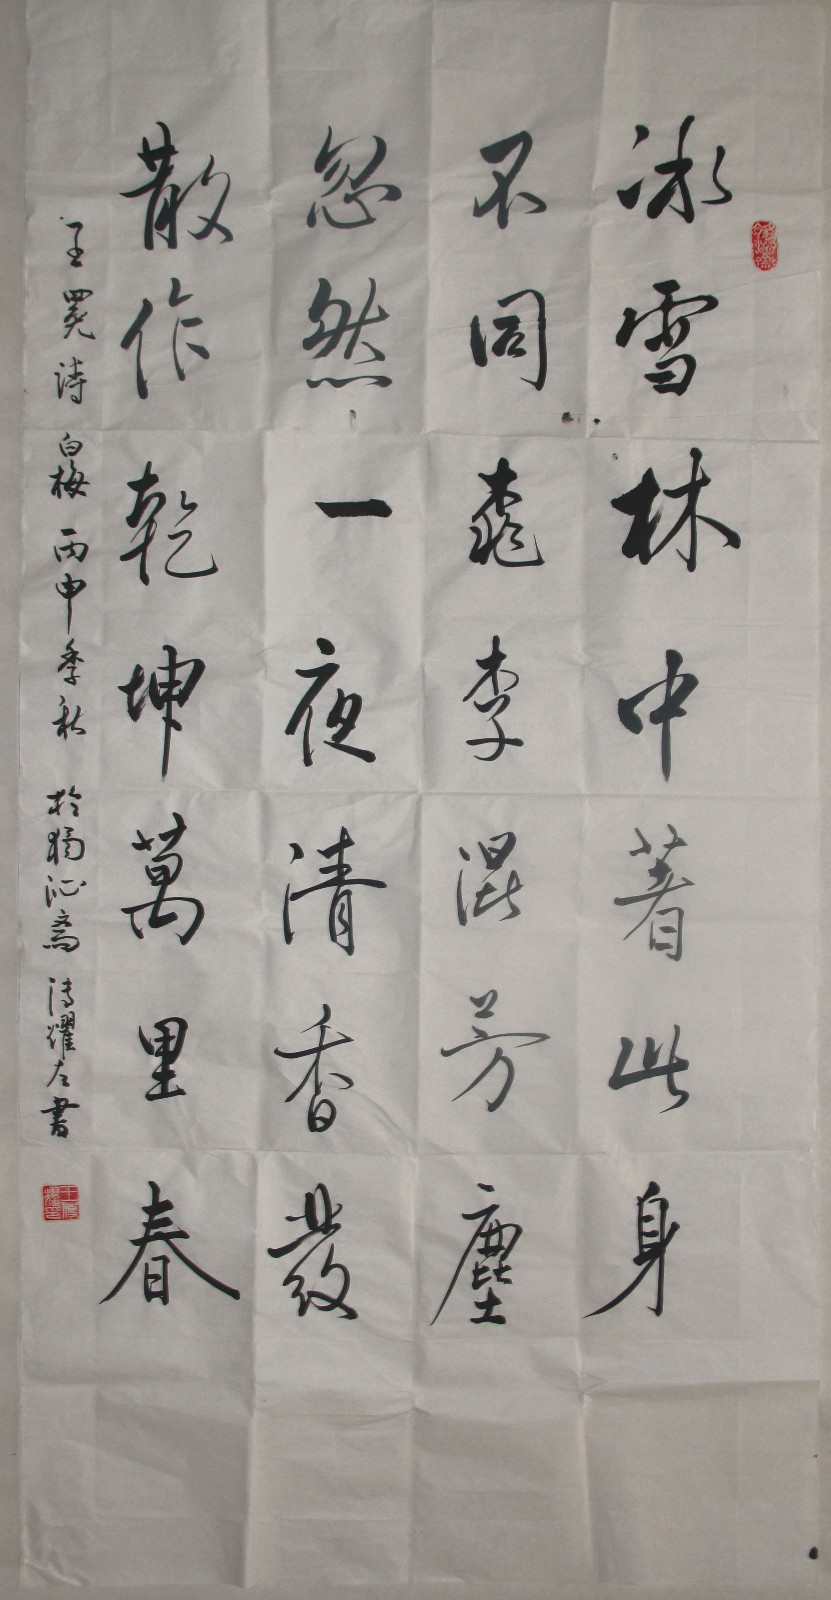 冰雪林中著此身
不同桃李混芳塵
忽然一夜清香發
散作乾坤萬里春
王冕詩 白梅 丙申季秋 於獨沁齋 傳耀左書